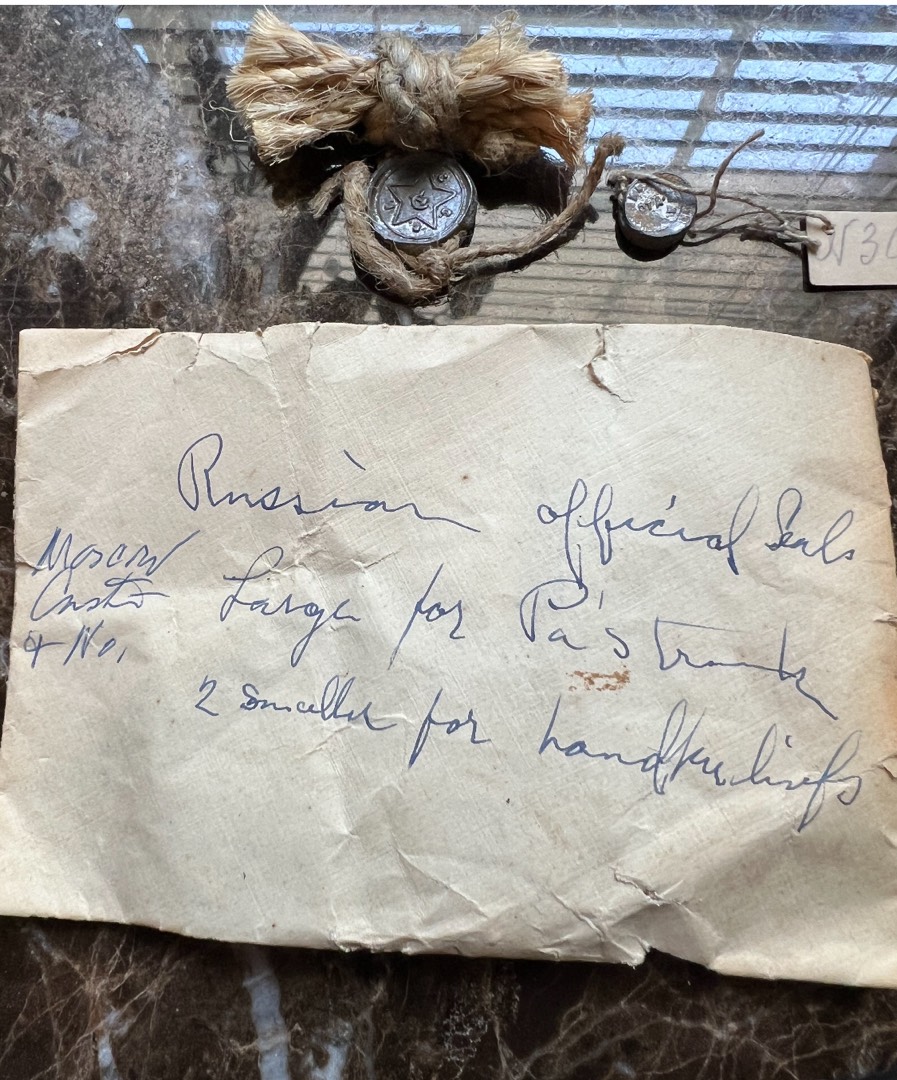 N 30
Russian official Seals
Moscow
Large for Pa's Trunk
& No.
2 smaller for handkerchiefs